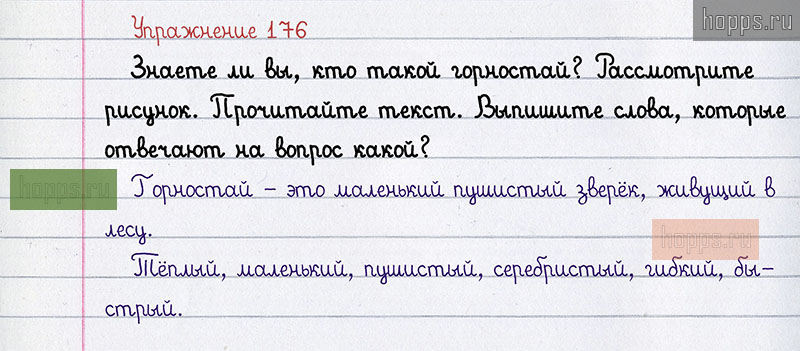 hopps.ru
Упражнение 176
Знаете ли вы, кто такой горностай? Рассмотрите
рисунок. Прочитайте текст. Выпишите слова, которые
отвечают на вопрос какой?
hopps.ru
Горностай – это маленький пушистый зверёк, живущий в
лесу.
hopps.ru
Тёплый, маленький, пушистый, серебристый, гибкий, бы–
стрый.